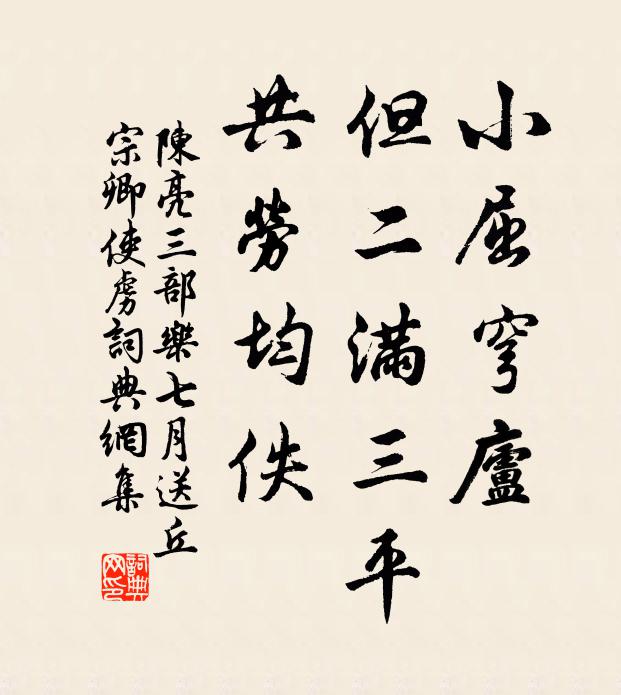 小屈穹廬
但二滿三平
共勞均佚
陳亮三部樂七月送丘
宗卿使虜詞典網集
詞典
网印